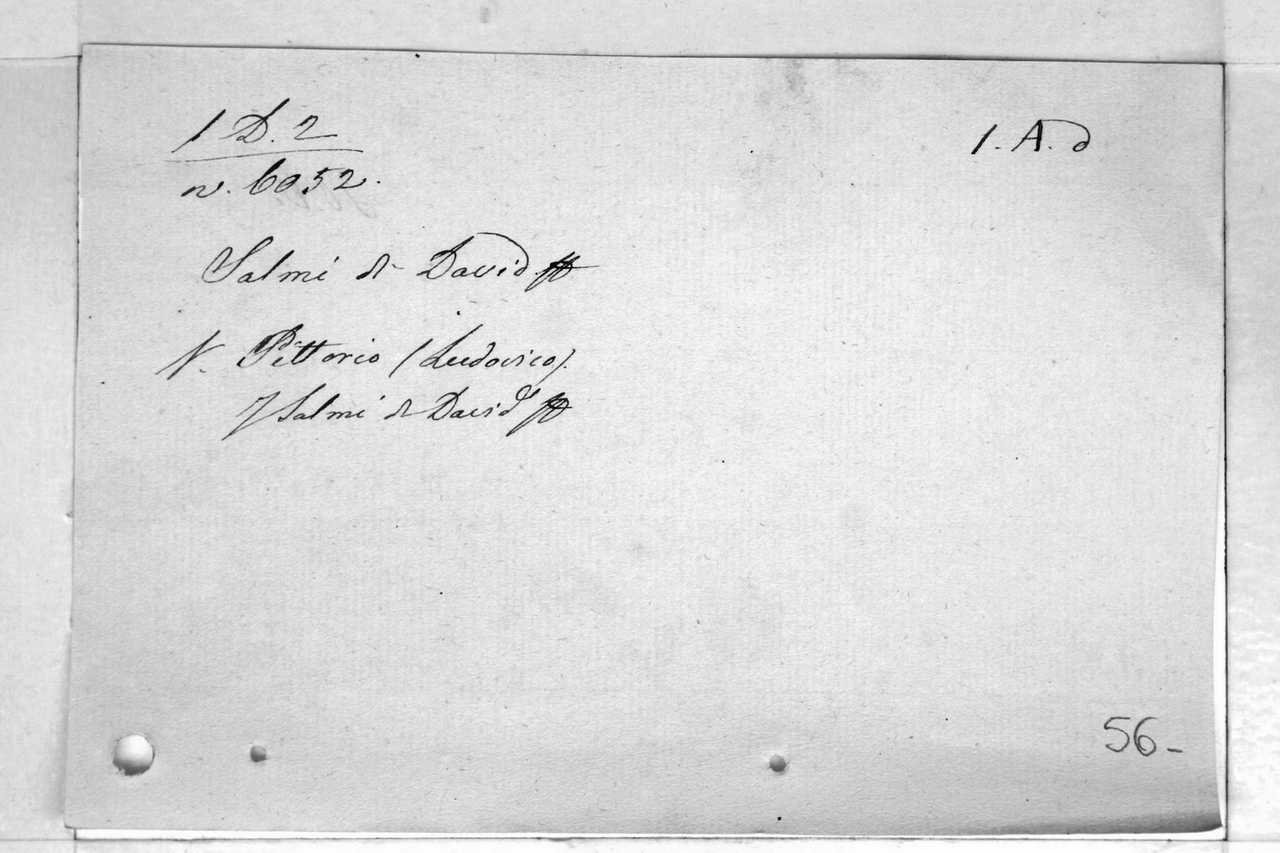 1 D. 2
n. 6052.
1. A. d
Salmi di David
V. Pittorio (Ludovico).
7 Salmi di David
56-